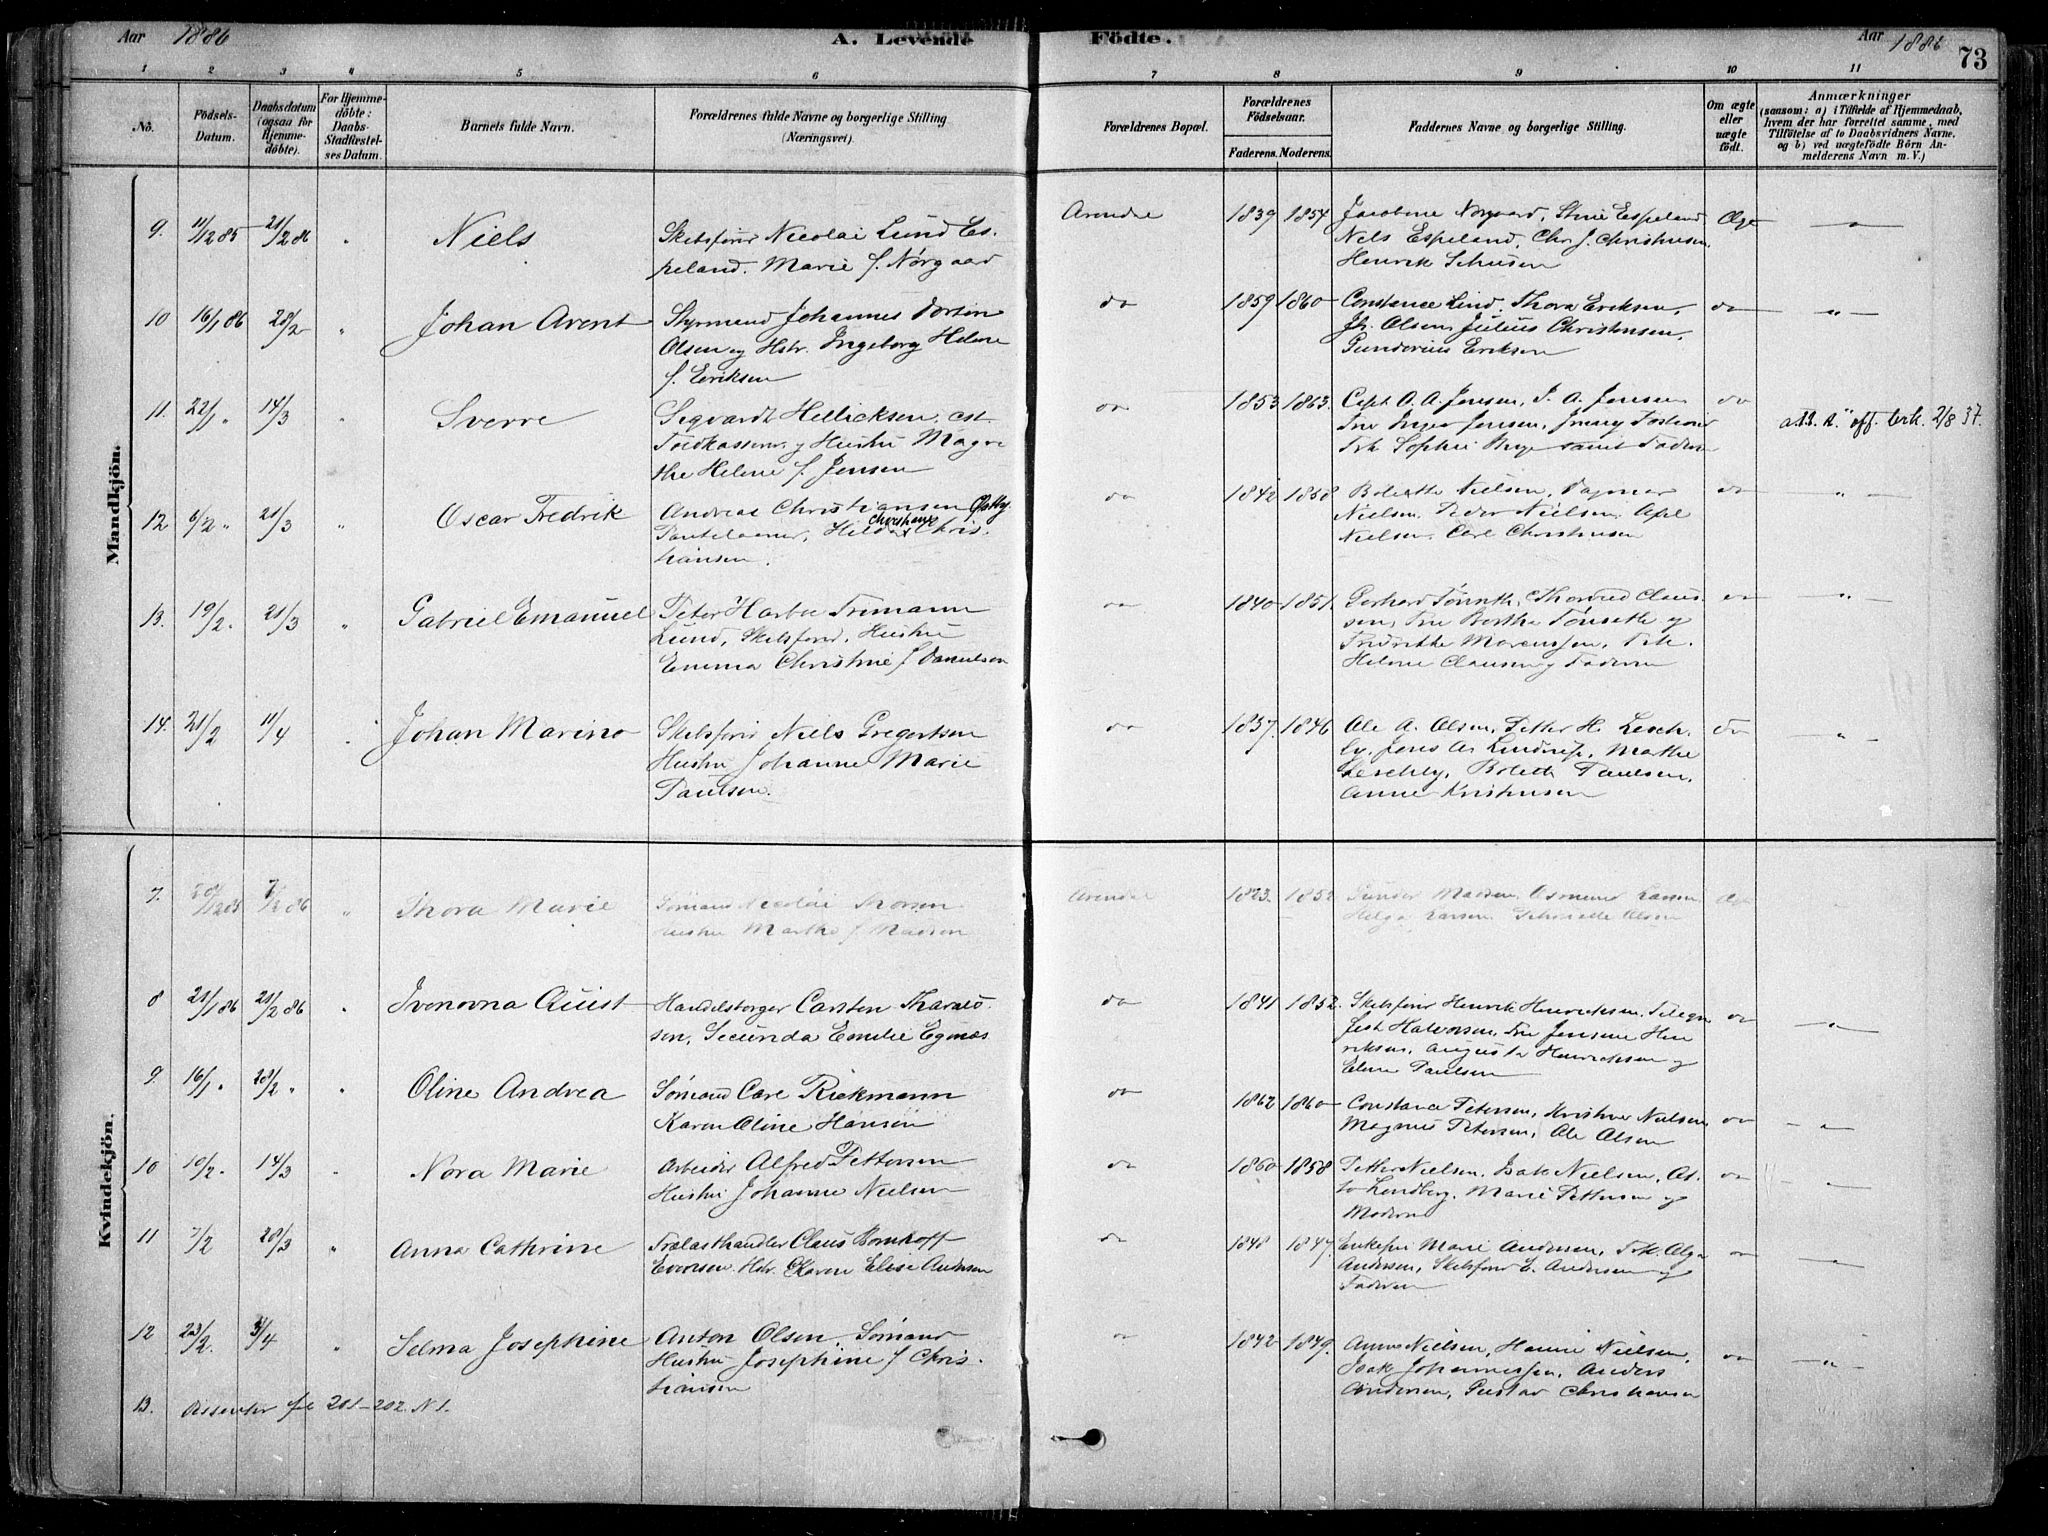 Aar 1886
A. Levende Födte.
Aar 1886
73
1 2 3 4 5 6 7 8 9 10 11
No.
Födsels-
Datum.
Daabsdatum
(ogsaa for
Hjemme-
döbte).
For Hjemme-
döbte:
Daabs-
Stadfæstel-
ses Datum.
Barnets fulde Navn.
Forældrenes fulde Navne og borgerlige Stilling
(Næringsvei).
Forældrenes Bopæl.
Forældrenes
Födselsaar.
Faderens. Moderens.
Faddernes Navne og borgerlige Stilling.
Om ægte
eller
uægte
födt.
Anmærkninger
(saasom: a) i Tilfælde af Hjemmedaab,
hvem der har forrettet samme, med
Tilföielse af to Daabsvidners Navne,
og b) ved uægtefödte Börn An-
melderens Navn m. V.)
Mandkjön.
9. 11/12 85 21/2 86 " Niels
Skibsfører Nicolai Lund Es-
peland. Marie f. Nørgaard
Arendal 1839 1854
Jacobine Nørgaard, Stine Espeland
Nels Espeland, Chr. J. Christensen
Henrik
Ægte "
10 16/1 86 28/2 " Johan Arent
Styrmand Johannes
Olsen og Hstr. Ingeborg Helene
f. Eriksen
do 1859 1860
Constance Lind, Thora Eriksen,
Jh. Olsen, Julius Christensen,
Gunderius Eriksen
do "
11. 22/1 " 14/3 " Sverre
Segvardt Hellicksen, est.
Toldkasserer og Hustru Magre
the Helene f. Jensen
do 1853 1863.
Capt. A. A. Jensen, J. A. Jensen
Fru Inger Jensen,
Frk Sophie Berge samt Faderen
do off. bek. 2/8 37.
12 6/2 " 21/3 " Oscar Fredrik
Andreas Christiansen
Christiane
Hilda Chris-
tiansen.
do 1842 1858
Bolette Nielsen, Dagmar
Nielsen, Peder Nielsen, Axel
Nielsen, Carl Christensen
do "
13. 19/2. 21/3 " Gabriel Emanuel
Peter Harboe Tremann
Lund, Skibsfører, Hustru
Emma Christine f. Danielsen
do 1840 1851.
Gerhard Claus-
sen, Fru Berthe Tønseth og
Fredrikke Marcussen, Frk.
Helene Clausen og Faderen
do "
14. 21/2 11/4 " Johan Marino
Skibsfører Niels Gregertsen
Hustru Johanne Marie
Paulsen.
do 1837. 1846
Ole A. Olsen, Petter H. Lesch-
ly, Jens As. Lindrup, Marthe
Leschly, Boleth Paulsen,
Anne Kristensen
do "
Kvindekjön.
7. 30/12 85 7/2 86 " Thora Marie
Sømand Nicolai Thorsen
Hustru Marthe f. Madsen
Arendal 1823. 1852
Gunder Madsen, Osmund Larsen
Helga Larsen, Olsen
Ægte
8 21/1 86 21/2 86 " Ivenovna Quist
Handelsborger Carsten Tharald-
sen, Secunda Emilie Egenæs
do 1841 1852.
Skibsfører Henrik Henriksen, Telegra
fist Halvorsen, Fru Jensine Hen
riksen, Augusta Henrichsen og
Elina Paulsen
do "
9 16/1 " 28/2 " " Oline Andrea
Sømand Carl Rickmann
Karen Oline Hansen
do 1862 1860
Constance Petersen, Kristine Nielsen,
Magnus Petersen, Ole Olsen
do "
10 10/2. 14/3 " Nora Marie
Arbeider Alfred Pettersen
Hustru Johanne Nielsen
do 1860 1858
Petter Nielsen, Isak Nielsen, As-
ta Lundberg, Marie Pettersen og
Moderen
do "
11 7/2 28/3 " Anna Cathrine
Trælasthandler Claus Bomhoff
Evensen. Hstr. Karen Elise Andersen
do 1848 1847.
Enkefru Marie Andersen, Frk. Olga
Andersen, Skibsfører E. Andersen og
Faderen
do "
12 23/2. 3/4 " Selma Josephine
Anton Olsen, Sømand
Hustru Josephine f. Chris-
tiansen
do 1842 1849.
Anne Nielsen, Hanne Nielsen,
Isak Johannessen, Anders
Andersen, Gustav Christiansen
do "
13. Dissenter fol 201-202. N 1.